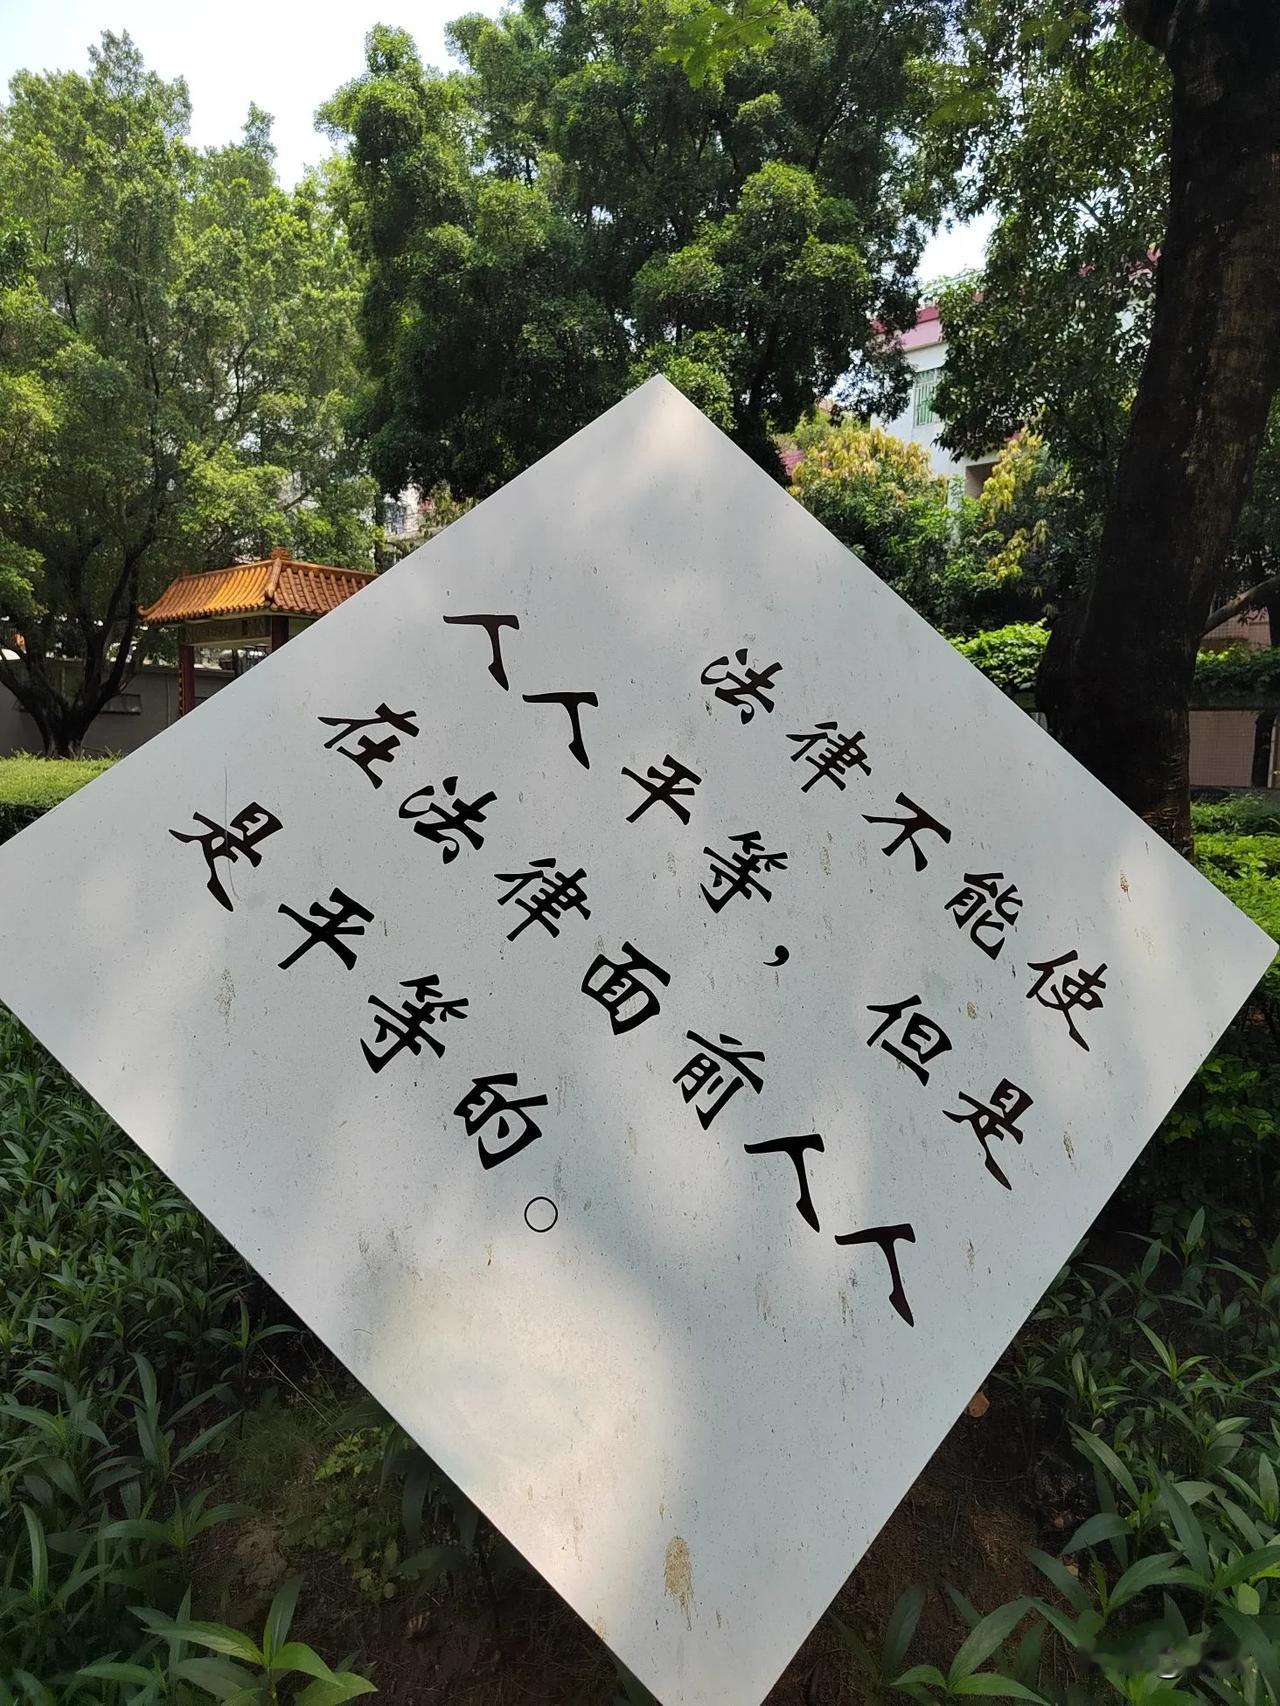 法律不能使
人人平等，但是
在法律面前人人
是平等的。